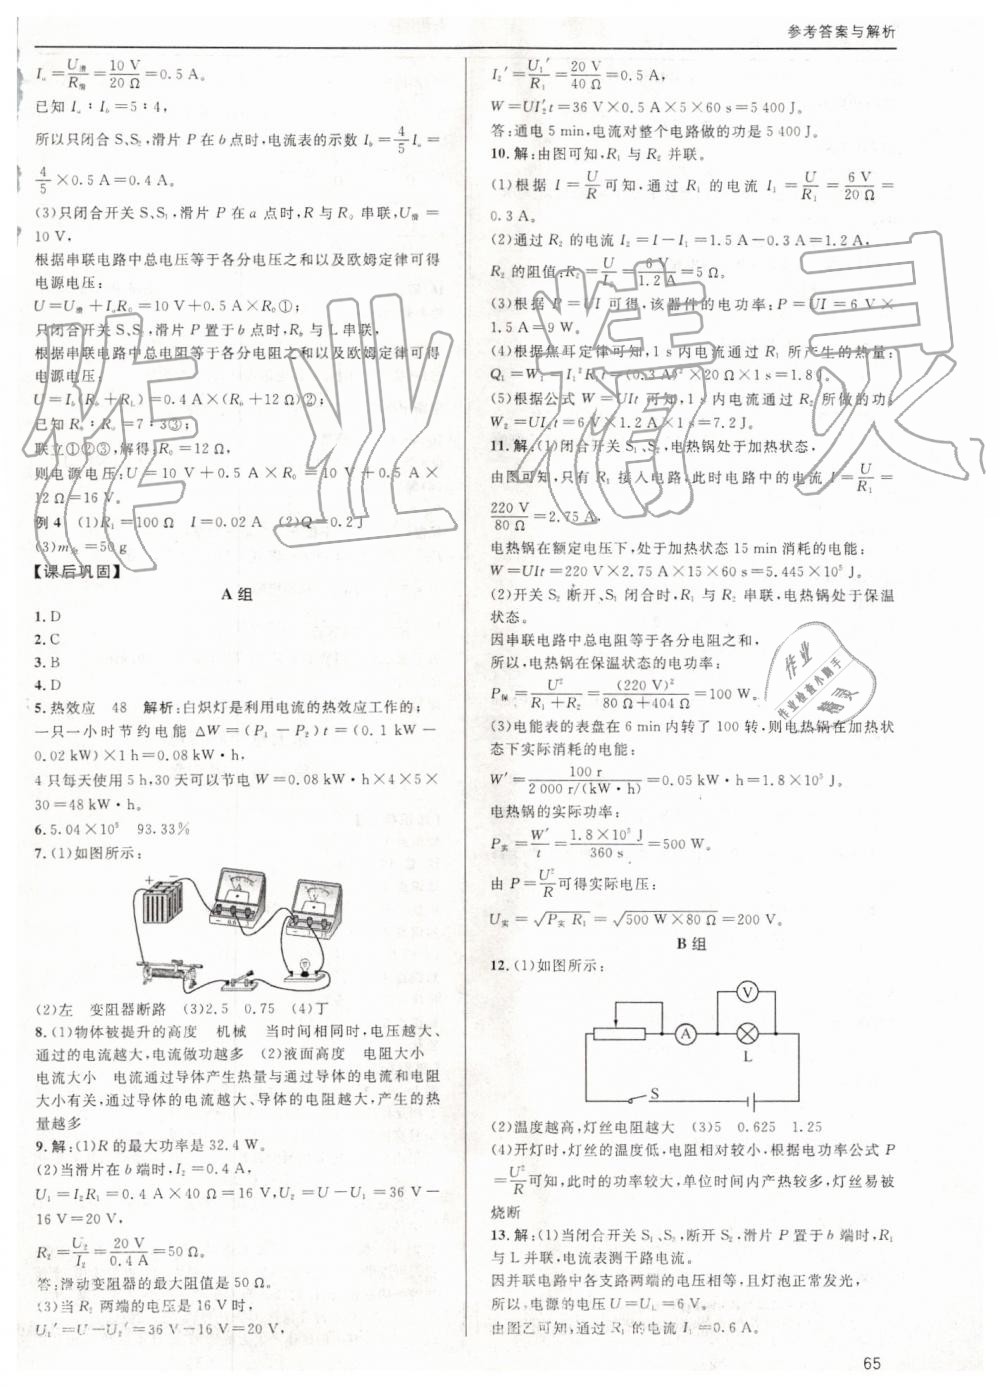 参考答案与解析
Iₐ=U滑/R滑=10 V/20 Ω=0.5 A。
已知 Iₐ∶I_b=5∶4,
所以只闭合 S、S₂,滑片 P 在 b 点时,电流表的示数 I_b=4/5 Iₐ=
4/5×0.5 A=0.4 A。
(3)只闭合开关 S、S₁,滑片 P 在 a 点时,R 与 R₀ 串联,U滑=
10 V,
根据串联电路中总电压等于各分电压之和以及欧姆定律可得
电源电压:
U=U滑+IₐR₀=10 V+0.5 A×R₀①;
只闭合开关 S、S₂,滑片 P 置于 b 点时,R₀ 与 L 串联,
根据串联电路中总电阻等于各分电阻之和以及欧姆定律可得
电源电压:
U=I_b(R₀+R_L)=0.4 A×(R₀+12 Ω)②;
已知
联立①②③,解得:R₀=12 Ω,
则电源电压:U=10 V+0.5 A×R₀=10 V+0.5 A×
12 Ω=16 V。
例 4 (1)R₁=100 Ω I=0.02 A (2)Q=0.2 J
(3)=50 g
【课后巩固】
A 组
1. D
2. C
3. B
4. D
5. 热效应 48 解析:白炽灯是利用电流的热效应工作的;
一只一小时节约电能 ΔW=(P₁-P₂)t=(0.1 kW-
0.02 kW)×1 h=0.08 kW·h。
4 只每天使用 5 h,30 天可以节电 W=0.08 kW·h×4×5×
30=48 kW·h。
6. 5.04×10⁵ 93.33%
7. (1)如图所示:
(2)左 变阻器断路 (3)2.5 0.75 (4)丁
8. (1)物体被提升的高度 机械 当时间相同时,电压越大、
通过的电流越大,电流做功越多 (2)液面高度 电阻大小
电流大小 电流通过导体产生热量与通过导体的电流和电阻
大小有关,通过导体的电流越大、导体的电阻越大,产生的热
量越多
9. 解:(1)R 的最大功率是 32.4 W。
(2)当滑片在 b 端时,I₂=0.4 A,
U₁=I₂R₁=0.4 A×40 Ω=16 V,U₂=U-U₁=36 V-
16 V=20 V,
R₂=U₂/I₂=20 V/0.4 A=50 Ω。
答:滑动变阻器的最大阻值是 50 Ω。
(3)当 R₂ 两端的电压是 16 V 时,
U₁′=U-U₂′=36 V-16 V=20 V,
I₂′=U₁′/R₁=20 V/40 Ω=0.5 A,
W=UI₂′t=36 V×0.5 A×5×60 s=5 400 J。
答:通电 5 min,电流对整个电路做的功是 5 400 J。
10. 解:由图可知,R₁ 与 R₂ 并联。
(1)根据 I=U/R 可知,通过 R₁ 的电流 I₁=U/R₁=6 V/20 Ω=
0.3 A。
(2)通过 R₂ 的电流 I₂=I-I₁=1.5 A-0.3 A=1.2 A,
R₂ 的阻值:R₂=U/I₂=6 V/1.2 A=5 Ω。
(3)根据 P=UI 可得,该器件的电功率:P=UI=6 V×
1.5 A=9 W。
(4)根据焦耳定律可知,1 s 内电流通过 R₁ 所产生的热量:
Q₁=W₁=I₁²R₁t=(0.3 A)²×20 Ω×1 s=1.8 J。
(5)根据公式 W=UIt 可知,1 s 内电流通过 R₂ 所做的功:
W₂=UI₂t=6 V×1.2 A×1 s=7.2 J。
11. 解:(1)闭合开关 S₁、S₂,电热锅处于加热状态,
由图可知,只有 R₁ 接入电路,此时电路中的电流 I=U/R₁=
220 V/80 Ω=2.75 A,
电热锅在额定电压下,处于加热状态 15 min 消耗的电能:
W=UIt=220 V×2.75 A×15×60 s=5.445×10⁵ J。
(2)开关 S₂ 断开、S₁ 闭合时,R₁ 与 R₂ 串联,电热锅处于保温
状态。
因串联电路中总电阻等于各分电阻之和,
所以,电热锅在保温状态的电功率:
P保=U²/(R₁+R₂)=(220 V)²/(80 Ω+404 Ω)=100 W。
(3)电能表的表盘在 6 min 内转了 100 转,则电热锅在加热状
态下实际消耗的电能:
W′=100 r/(2 000 r/(kW·h))=0.05 kW·h=1.8×10⁵ J。
电热锅的实际功率:
P实=W′/t=1.8×10⁵ J/360 s=500 W。
由 P=U²/R 可得实际电压:
U实=√(P实 R₁)=√(500 W×80 Ω)=200 V。
B 组
12. (1)如图所示:
V
A
L
S
(2)温度越高,灯丝电阻越大 (3)5 0.625 1.25
(4)开灯时,灯丝的温度低,电阻相对较小,根据电功率公式 P
=U²/R 可知,此时的功率较大,单位时间内产热较多,灯丝易被
烧断
13. 解:(1)当闭合开关 S₁、S₂,断开 S₃,滑片 P 置于 b 端时,R₁
与 L 并联,电流表测干路电流。
因并联电路中各支路两端的电压相等,且灯泡正常发光,
所以,电源的电压 U=U_L=6 V。
由图乙可知,通过 R₁ 的电流 I₁=0.6 A。
65
作业精灵
作业
作业检查小助手
精灵